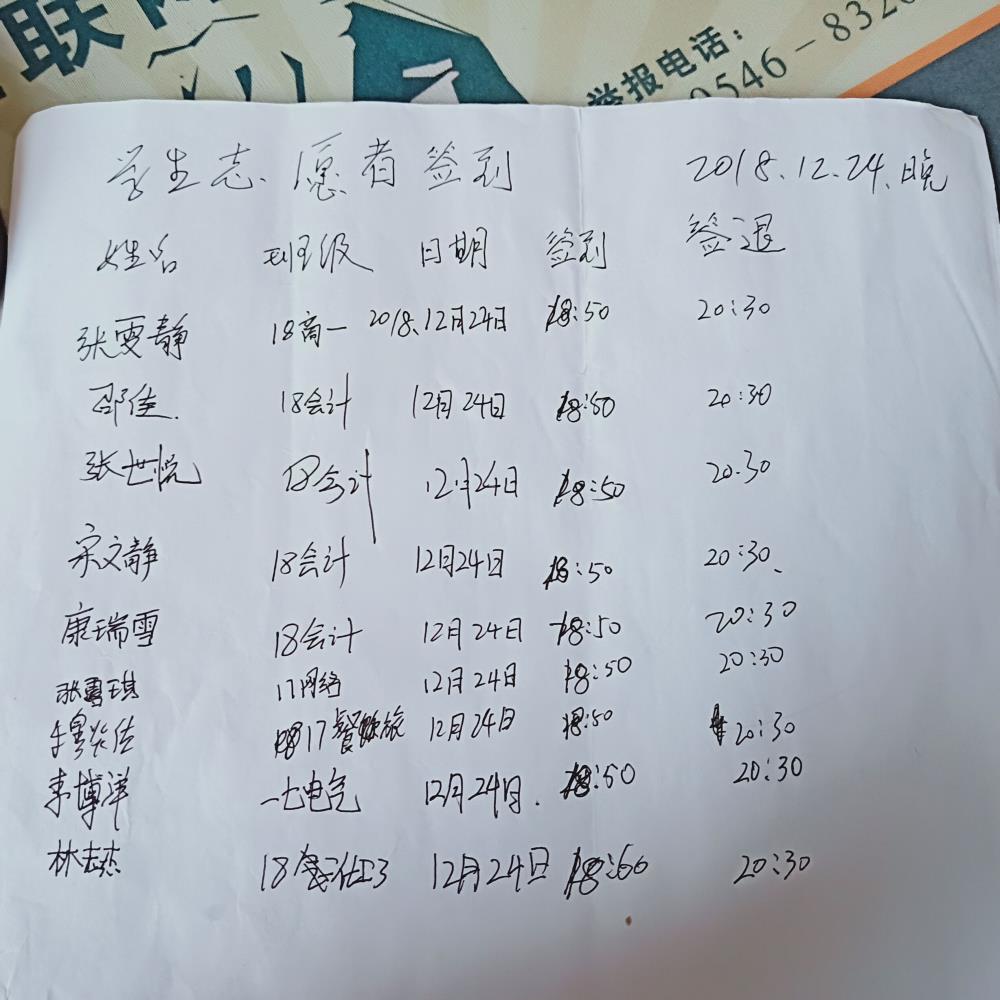 联
举报电话:
0546-832
学生志愿者签到 2018.12.24.晚
姓名 班级 日期 签到 签退
张雯静 18高一 2018.12月24日 18:50 20:30
邵佳. 18会计 12月24日 18:50 20:30
张世悦 18会计 12月24日 18:50 20.30
宋文静 18会计 12月24日 18:50 20:30、
康瑞雪 18会计 12月24日 18:50 20:30
张雪琪 17网络 12月24日 18:50 20:30
17餐旅 12月24日 18:50 20:30
李博洋 一七电气 12月24日. 18:50 20:30
林志杰 18 12月24日 18:60 20:30